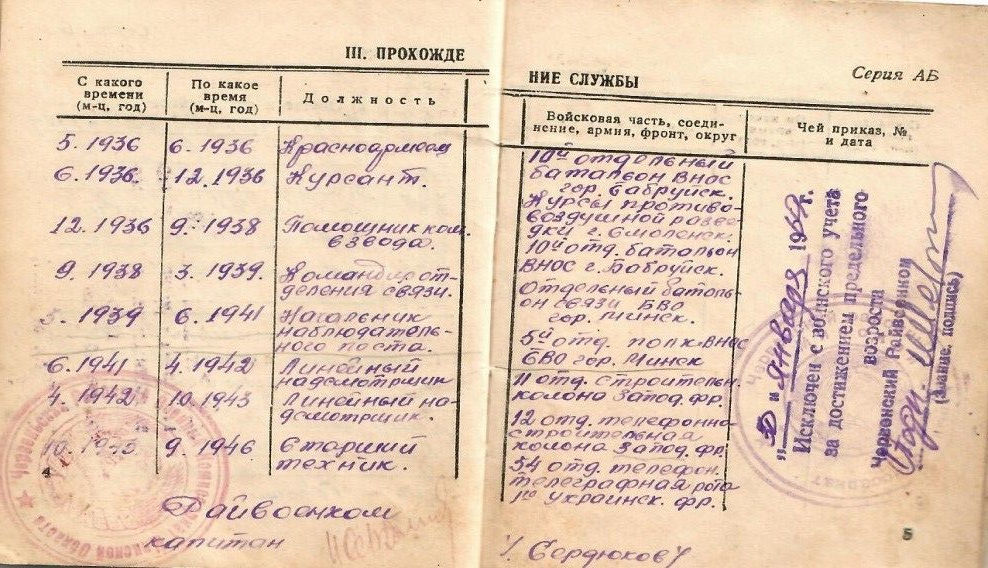 III. ПРОХОЖДЕ
НИЕ СЛУЖБЫ
Серия АБ
С какого времени (м-ц, год)
По какое время (м-ц, год)
Должность
Войсковая часть, соеди-
нение, армия, фронт, округ
Чей приказ, №
и дата
5. 1936 6. 1936 Красноармеец
6. 1936 12. 1936 Курсант.
12. 1936 9. 1938 Помощник ком.
взвода.
9. 1938 3. 1939. Командир от-
деления связи.
1939 6. 1941 Начальник
наблюдатель-
ного поста.
6. 1941 4. 1942 Линейный
надсмотрщик
4. 1942 10. 1943 Линейный на-
дсмотрщик.
10. 1943 9. 1946 Старший
техник.
Райвоенком
капитан
10й отдельный
батальон ВНОС
гор. Бабруйск.
Курсы противо-
воздушной разве-
дки г. Смоленск.
10й отд. батальон
ВНОС г. Бабруйск.
Отдельный баталь-
он связи БВО
гор. Минск.
5й отд. полк ВНОС
БВО гор. Минск
11 отд. строительн.
колона Запод. фр.
12 отд. телефонно
строительная
колона Запод. фр.
54 отд. телефон.
телеграфная рота
1го Украинск. фр.
/ Сердюков /
„30“ января 19 г.
Исключен с воинского учета
за достижением предельного
возраста
Червенский Райвоенком
(звание, подпись)
5